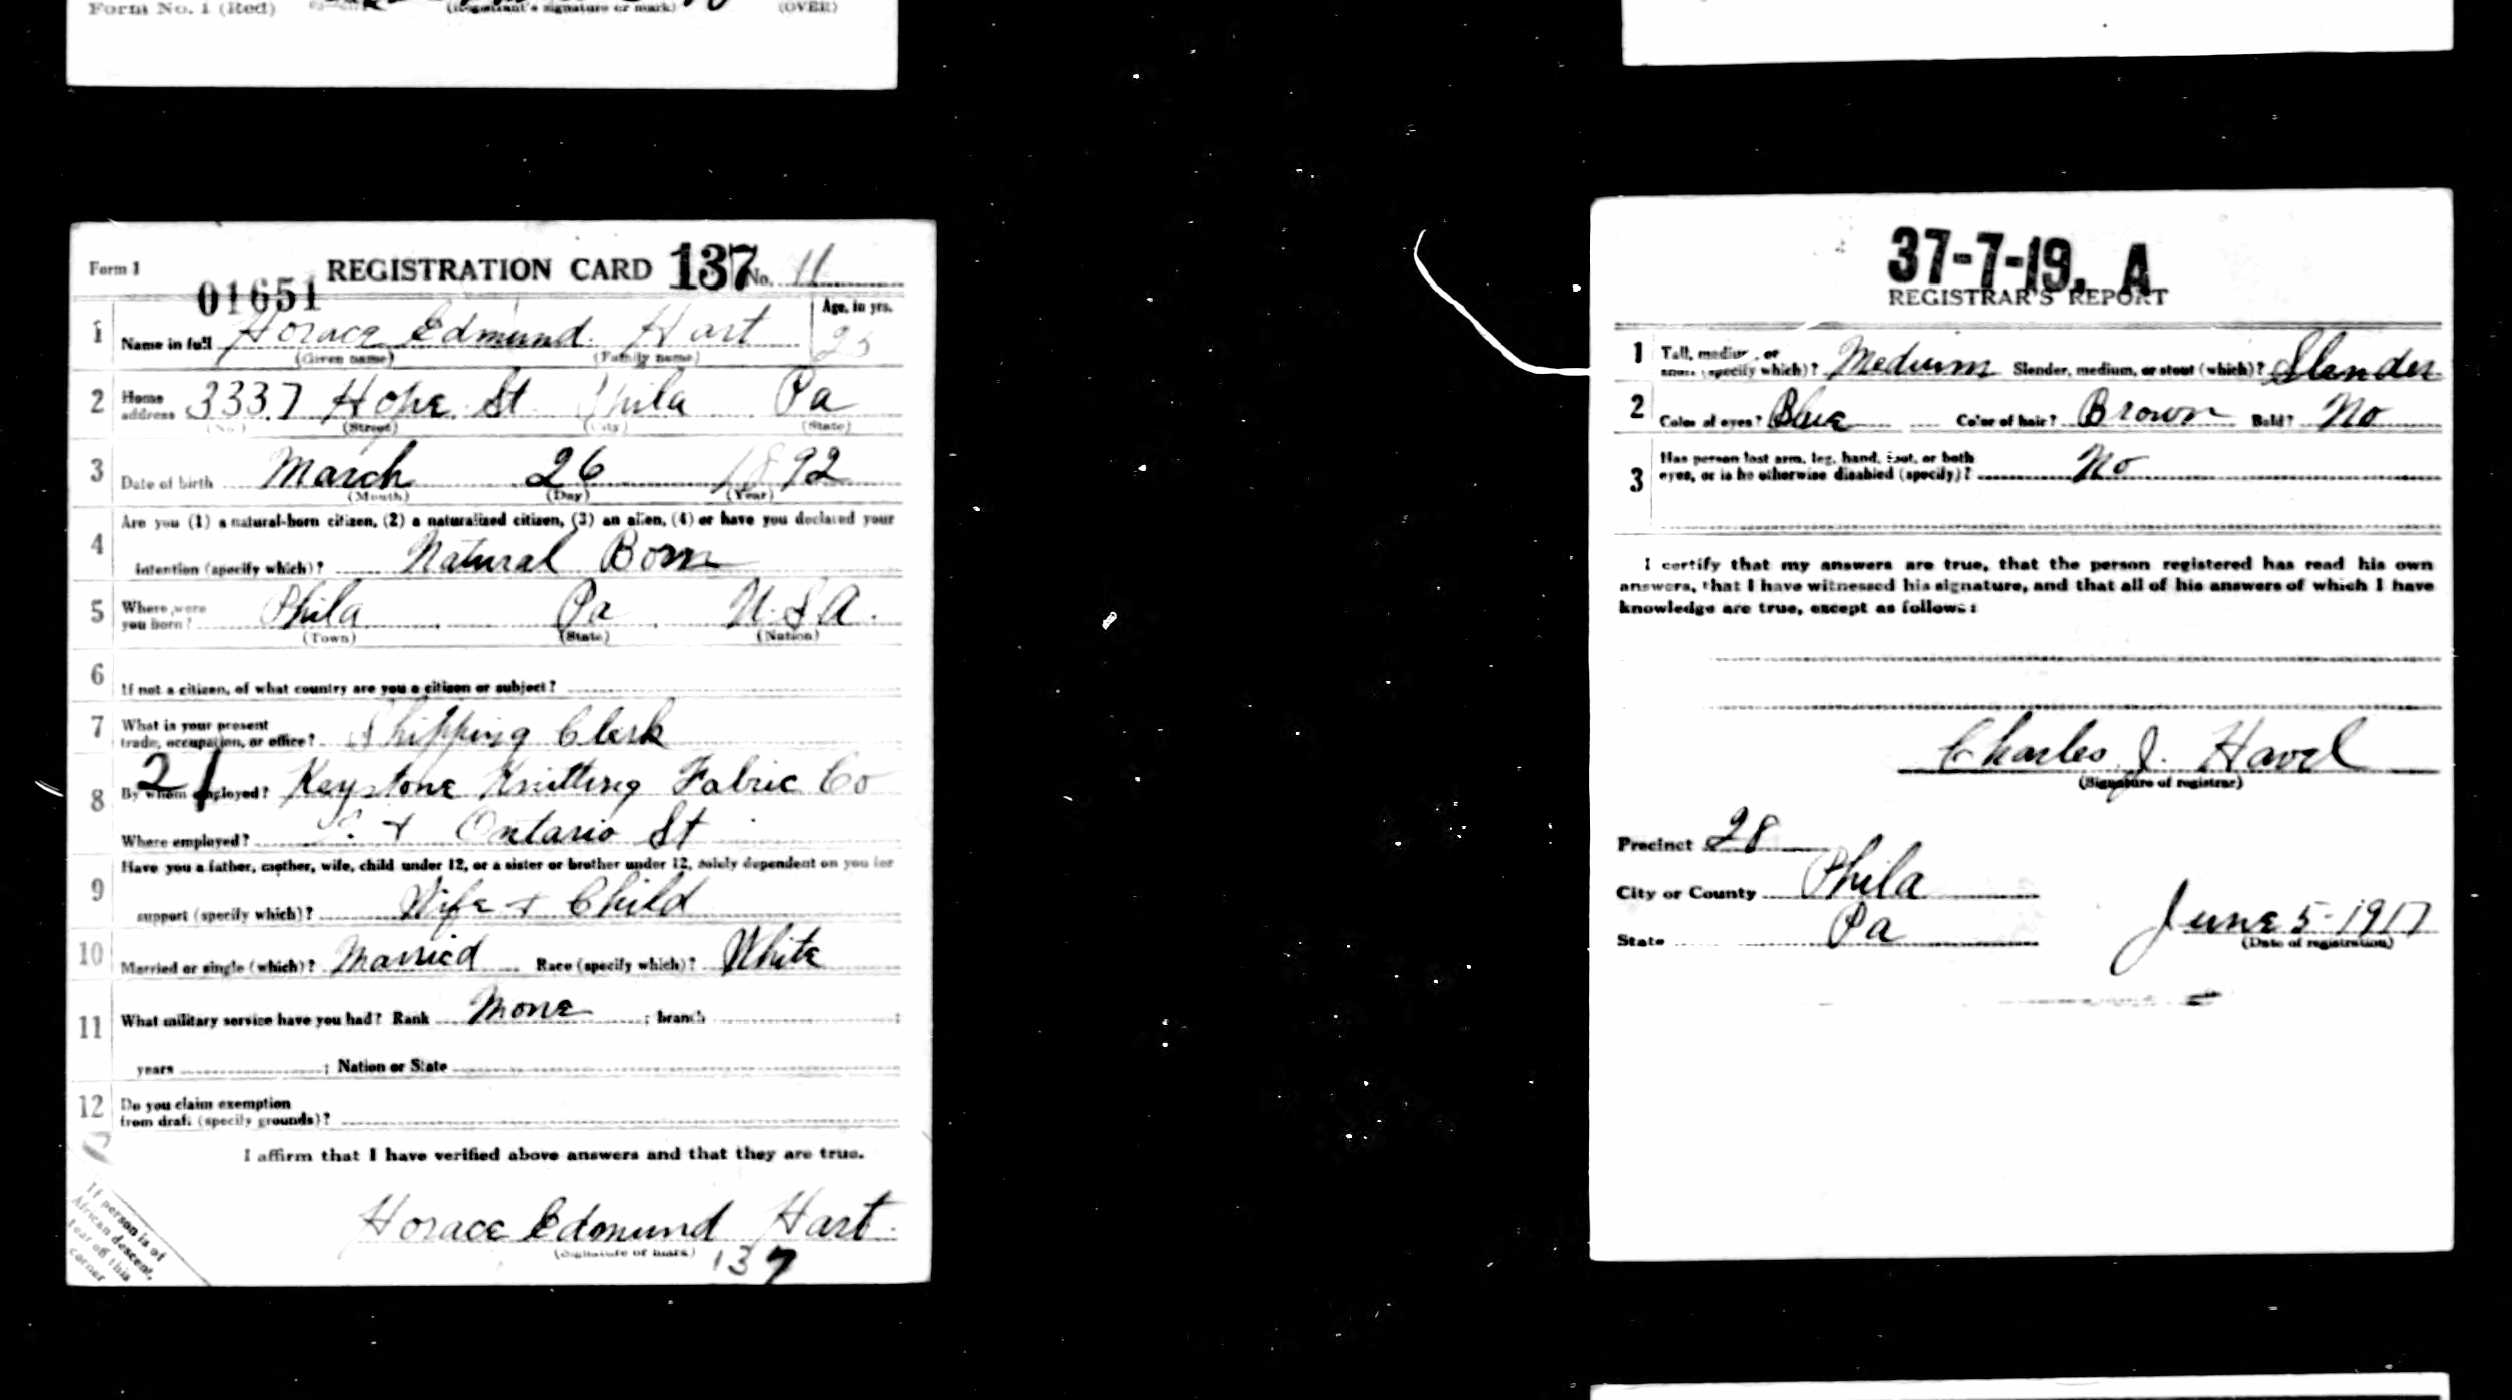 Form No. 1 (Red) (Registrant's signature or mark) (OVER)
Form 1 REGISTRATION CARD 137 No. 11
01651
1 Name in full Horace Edmund Hart Age, in yrs. 25
(Given name) (Family name)
2 Home address 3337 Hope St Phila Pa
(No.) (Street) (City) (State)
3 Date of birth March 26 1892
(Month) (Day) (Year)
4 Are you (1) a natural-born citizen, (2) a naturalized citizen, (3) an alien, (4) or have you declared your
intention (specify which)? Natural Born
5 Where were you born? Phila Pa U.S.A.
(Town) (State) (Nation)
6 If not a citizen, of what country are you a citizen or subject?
7 What is your present
trade, occupation, or office? Shipping Clerk
21
8 By whom employed? Keystone Knitting Fabric Co
Where employed? + Ontario St
9 Have you a father, mother, wife, child under 12, or a sister or brother under 12, solely dependent on you for
support (specify which)? Wife + Child
10 Married or single (which)? Married Race (specify which)? White
11 What military service have you had? Rank None ; branch ;
years ; Nation or State
12 Do you claim exemption
from draft (specify grounds)?
I affirm that I have verified above answers and that they are true.
Horace Edmund Hart
(Signature or mark) 137
If person is of
African descent,
tear off this
corner
37-7-19. A
REGISTRAR'S REPORT
1 Tall, medium, or
short (specify which)? Medium Slender, medium, or stout (which)? Slender
2 Color of eyes? Blue Color of hair? Brown Bald? No
3 Has person lost arm, leg, hand, foot, or both
eyes, or is he otherwise disabled (specify)? No
I certify that my answers are true, that the person registered has read his own
answers, that I have witnessed his signature, and that all of his answers of which I have
knowledge are true, except as follows:
Charles J. Havel
(Signature of registrar)
Precinct 28
City or County Phila
State Pa
June 5-1917
(Date of registration)